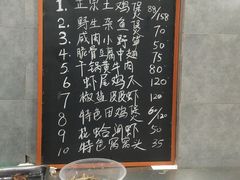 1. 正宗土鸡煲 39/158
2. 野生杂鱼煲 70
3. 咸肉小野笋 50
4. 脆骨豆腐中翅 75
5. 干锅黄牛肉 80
6 虾尾鸡爪 120
7 椒盐 虾 120
8 特色田鸡煲 /120
9 花蛤河虾 50
10 特色窝窝头 35